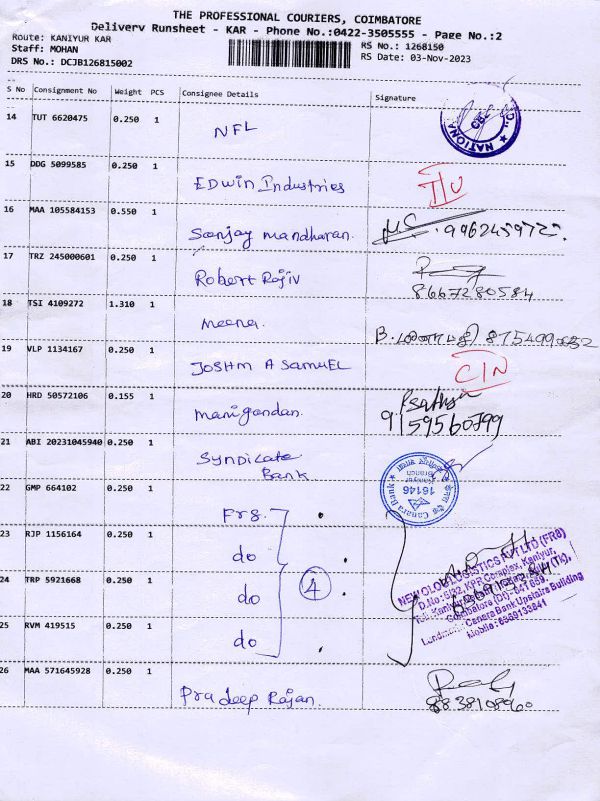 THE PROFESSIONAL COURIERS, COIMBATORE
Delivery Runsheet - KAR - Phone No.:0422-3505555 - Page No.:2
Route: KANIYUR KAR
Staff: MOHAN
DRS No.: DCJB126815002
RS No.: 1268150
RS Date: 03-Nov-2023
S No Consignment No Weight PCS Consignee Details Signature
14 TUT 6620475 0.250 1 NFL
15 DDG 5099585 0.250 1 EDwin Industries
16 MAA 105584153 0.550 1 Sanjay mandharan. 9962459727.
17 TRZ 245000601 0.250 1 Robert Rajiv
8667280584
18 TSI 4109272 1.310 1 meena. B.
19 VLP 1134167 0.250 1 JOSHM A SAMUEL CIN
20 HRD 50572106 0.155 1 manigandan. 9159560799
21 ABI 20231045940 0.250 1 Syndicate
Bank
Canara Bank
16146
Kaniyur
Branch
22 GMP 664102 0.250 1 Frg.
23 RJP 1156164 0.250 1 do
24 TRP 5921668 0.250 1 do 4
25 RVM 419515 0.250 1 do
NEW OLOGY LOGISTICS PVT LTD (FR8)
D.No: 5/32, KPR Complex, Kaniyur,
Coimbatore (Dt) - 641 659.
Landmark: Canara Bank Upstairs Building
Mobile: 6369133841
26 MAA 571645928 0.250 1 Pradeep Rajan.
8838108960